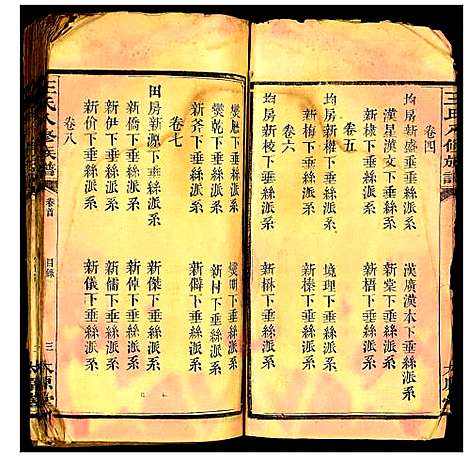 王氏八修族譜
卷四
均房新盛垂絲派系　漢廣漢本下垂絲派系
漢星漢文下垂絲派系　新堂下垂絲派系
卷五
新梅下垂絲派系　新梧下垂絲派系
均房新棟下垂絲派系　境理下垂絲派系
卷六
均房新棱下垂絲派系　新楙下垂絲派系
太原堂
燮乾下垂絲派系　燮明下垂絲派系
新斧下垂絲派系　新村下垂絲派系
新僻下垂絲派系
卷七
田房新源下垂絲派系　新傑下垂絲派系
新僑下垂絲派系　新倬下垂絲派系
新伊下垂絲派系　新儒下垂絲派系
新价下垂絲派系　新儀下垂絲派系
卷八
王氏八修族譜
卷首
目錄
三
太原堂